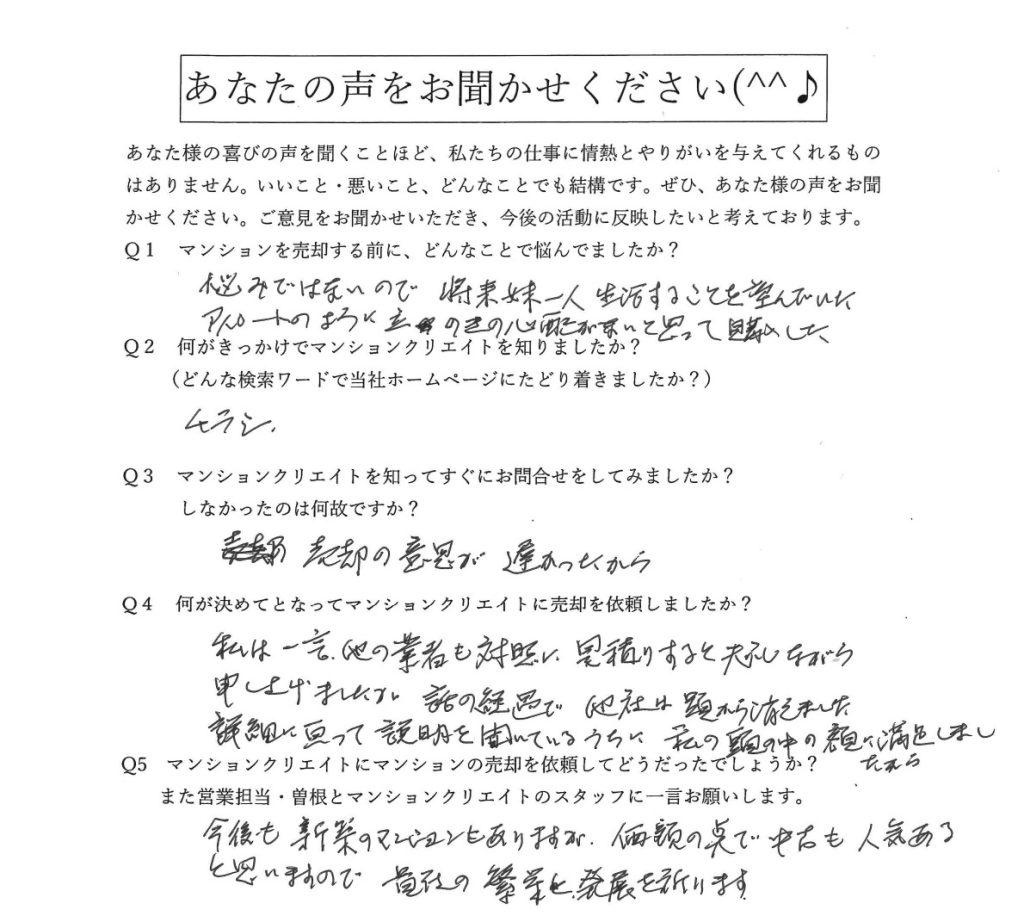 あなたの声をお聞かせください(^^♪
あなた様の喜びの声を聞くことほど、私たちの仕事に情熱とやりがいを与えてくれるもの
はありません。いいこと・悪いこと、どんなことでも結構です。ぜひ、あなた様の声をお聞
かせください。ご意見をお聞かせいただき、今後の活動に反映したいと考えております。
Q1 マンションを売却する前に、どんなことで悩んでましたか？
悩みではないので 将来妹一人生活することを望んでいた
アパートのように立 のきの心配がないと思って購入した
Q2 何がきっかけでマンションクリエイトを知りましたか？
（どんな検索ワードで当社ホームページにたどり着きましたか？）
チラシ.
Q3 マンションクリエイトを知ってすぐにお問合せをしてみましたか？
しなかったのは何故ですか？
売却の意思が 遅かったから
Q4 何が決めてとなってマンションクリエイトに売却を依頼しましたか？
私は一言、他の業者も対照に 見積りすると失礼しながら
申し上げましたが 話の経過で 他社は頭から消えました
詳細に亘って説明を聞いているうちに 私の頭の中の額に満足しまし
たから
Q5 マンションクリエイトにマンションの売却を依頼してどうだったでしょうか？
また営業担当・曽根とマンションクリエイトのスタッフに一言お願いします。
今後も 新築のマンションもありますが、価額の点で中古も人気ある
と思いますので 貴社の繁栄と発展を祈ります